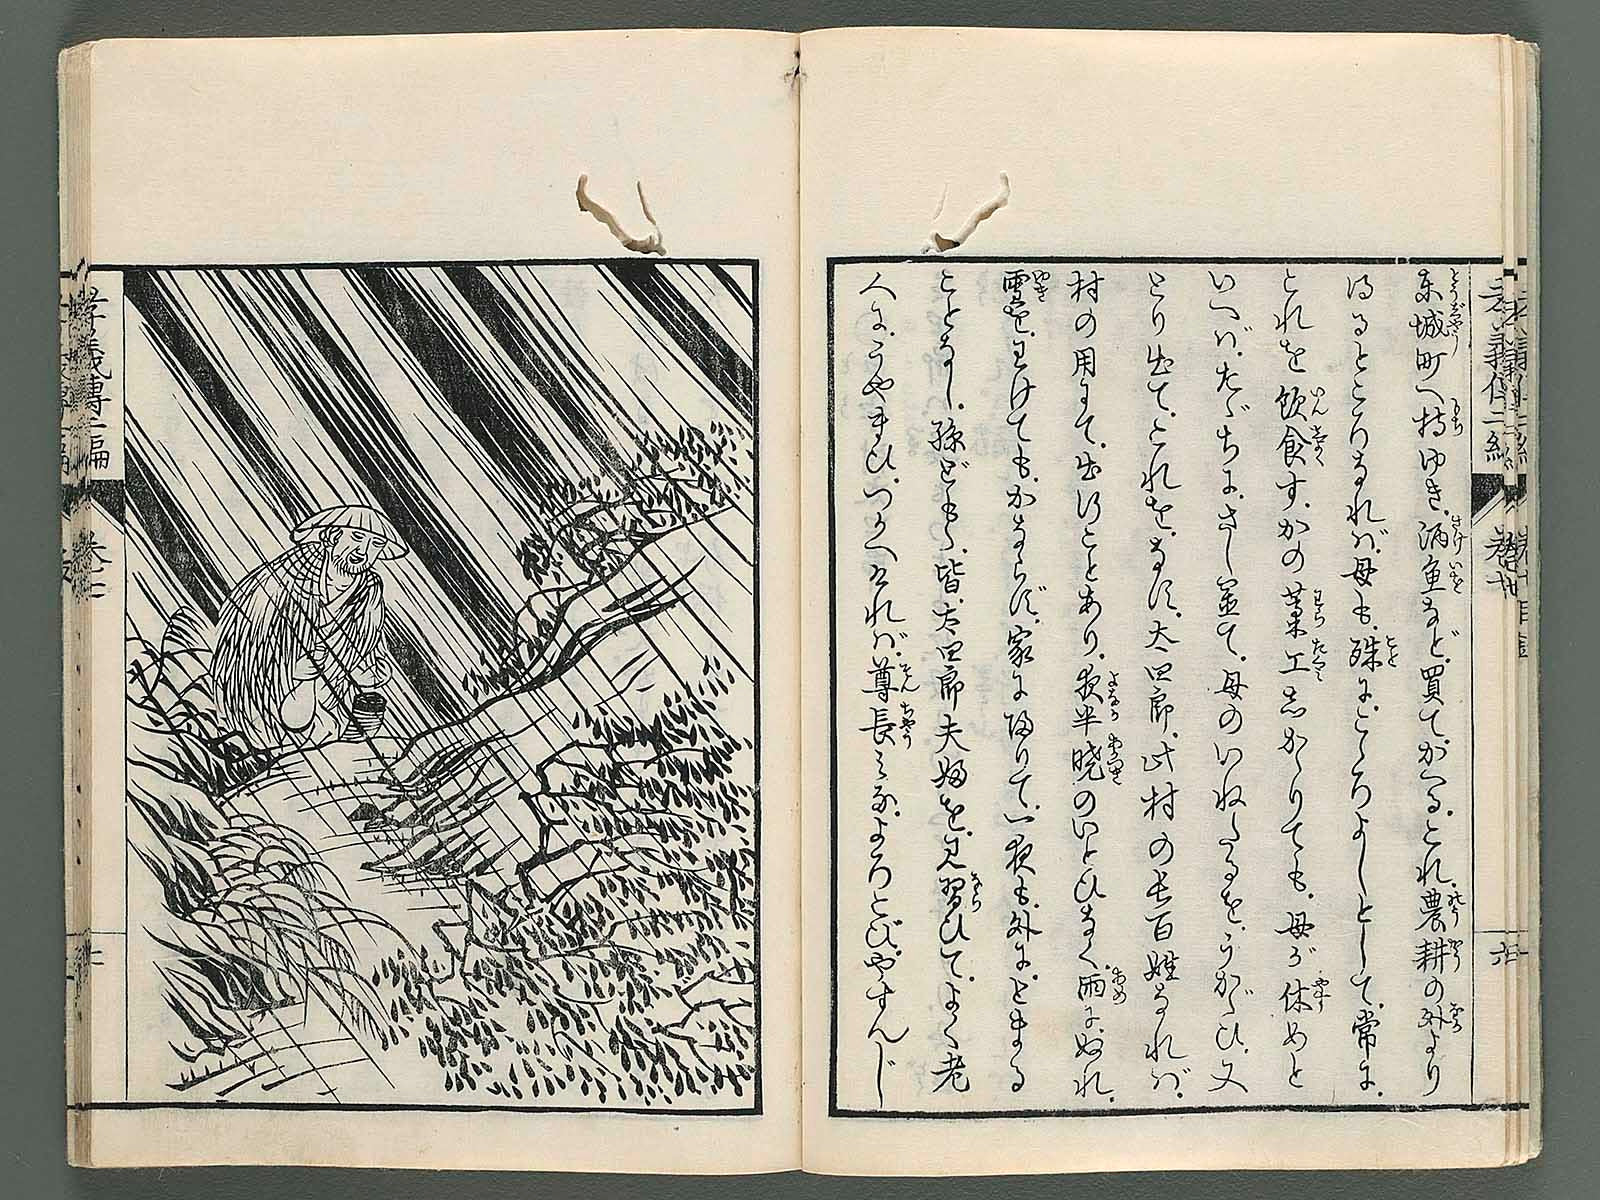 東城町へ持ゆき、酒魚など、買てがへる、これ、農耕の外より
得るところなれば、母も、殊によろこばしとして、常に、
これを飲食す、かの藁工しかゝりても、母が休めと
いへば、たゞちに、さし置て、母のいねたるを、うかゞひ、又
とり出て、これを、なす、太四郎、此村の長百姓なれば、
村の用にて、出行ことあり、夜半暁のいとひなく、雨にぬれ、
雪を、わけても、かならず、家に帰りて、一夜も、外に、とまる
ことなし、孫ども、皆、太四郎夫婦を、見習ひて、よく老
人に、うやまひ、つかへければ、尊長みな、よろこび、やすんじ
孝義傳二編
巻七